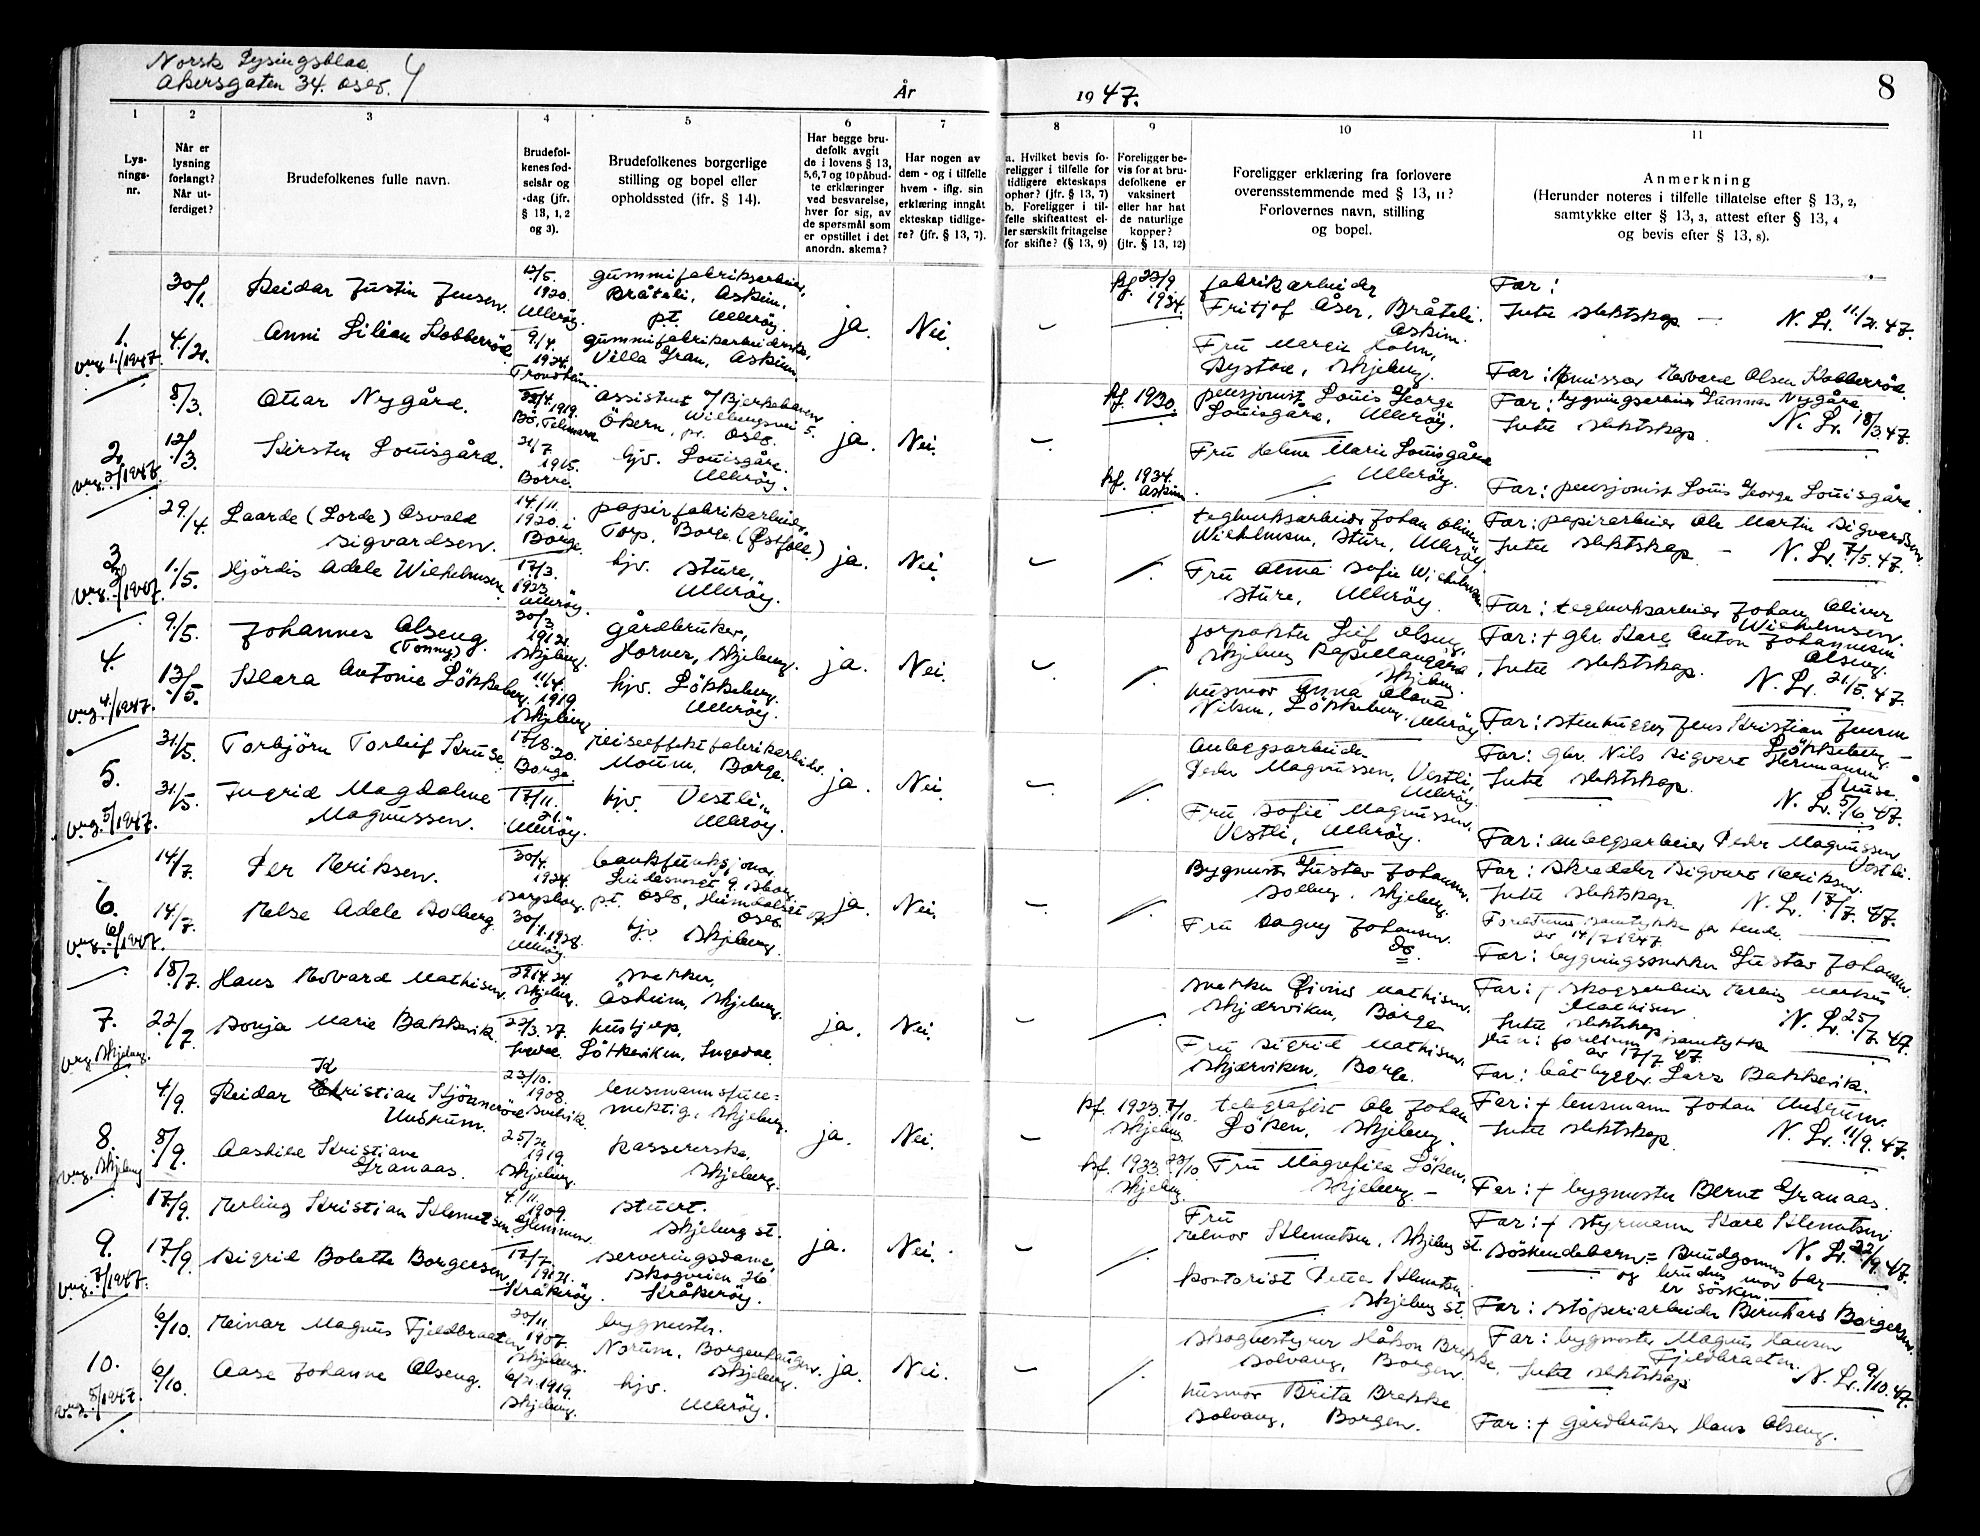 Norsk Lysingsblad
Akersgaten 34. Oslo.
År
1947.
8
1
2
3
4
5
6
7
8
9
10
11
Lys-
nings-
nr.
Når er
lysning
forlangt?
Når ut-
ferdiget?
Brudefolkenes fulle navn.
Brudefol-
kenes fød-
selsår og
-dag (jfr.
§ 13, 1, 2
og 3).
Brudefolkenes borgerlige
stilling og bopel eller
opholdssted (jfr. § 14).
Har begge bru-
defolk avgit
de i lovens § 13,
5,6,7 og 10 påbud-
te erklæringer
ved besvarelse,
hver for sig, av
de spørsmål som
er opstillet i det
anordn. skema?
Har nogen av
dem - og i tilfelle
hvem - iflg. sin
erklæring inngått
ekteskap tidlige-
re? (jfr. § 13, 7).
a. Hvilket bevis fo-
religger i tilfelle for
tidligere ekteskaps
ophør? (jfr. § 13, 7)
b. Foreligger i til-
felle skifteattest el-
ler særskilt fritagelse
for skifte? (§ 13, 9)
Foreligger be-
vis for at bru-
defolkene er
vaksinert
eller har hat
de naturlige
kopper?
(jfr. § 13, 12)
Foreligger erklæring fra forlovere
overensstemmende med § 13, 11?
Forlovernes navn, stilling
og bopel.
Anmerkning
(Herunder noteres i tilfelle tillatelse efter § 13, 2,
samtykke efter § 13, 3, attest efter § 13, 4
og bevis efter § 13, 8).
1.
vig. 1./1947.
30/1.
4/2.
Reidar Justin Jensen.
Anni Lilian Kobberrød
12/5.
1920.
Ullerøy.
9/4.
1924.
Trondheim.
gummifabrikkarbeider,
Bråteli, Askim,
p.t. Ullerøy.
gummifabrikarbeiderske,
Villa Gran, Askim.
ja.
Nei.
1934.
fabrikarbeider
Fritjof Åsen, Bråteli.
Askim.
Fru Margit Holm,
Rystad, Skjeberg.
Far:
Intet slektskap
N. L. 11/2. 47.
Far: Edvard Olsen Kobberrød
2.
vig. 2/1947.
8/3.
12/3.
Ottar Nygård.
Kirsten Louisgård.
1919.
Bø, Telemark
21/7.
1915.
Borre.
assistent v/ Bjerkebanen
Økern, pr. Oslo.
hjv. Louisgård.
Ullerøy.
ja.
Nei.
1930.
1934.
Askim
pensjonist Louis George
Louisgård, Ullerøy.
Fru Helene Marie Louisgård
Ullerøy.
Far: bygningsarbeider Gunnar Nygård.
Intet slektskap
N. L. 18/3.47.
Far: pensjonist Louis George Louisgård.
3.
vig. 3/1947.
29./4.
1./5.
Laarde (Lorde) Osvald
Sigvardsen.
Hjördis Adele Wilhelmsen.
14/11.
1920. i
Borge.
17/3.
1923
Ullerøy.
papirfabrikarbeider,
Torp, Borge. (Østfold)
hjv. Sture,
Ullerøy.
ja.
Nei.
teglverksarbeider Johan Oliver
Wilhelmsen, Sture, Ullerøy
Fru Alma Sofie Wilhelmsen
Sture, Ullerøy.
Far: papirarbeider Ole Martin Sigvardsen.
Intet slektskap
N. L. 7/5. 47.
Far: teglverksarbeider Johan Oliver
Wilhelmsen.
4.
vig. 4./1947.
9./5.
13/5.
Johannes Olseng.
(Tonny)
Klara Antonie Løkkeberg
30/3.
1912.
Skjeberg.
11/4.
1919
Skjeberg
gårdbruker,
Horner, Skjeberg.
hjv. Løkkeberg.
Ullerøy.
ja.
Nei.
forpakter Leif Olseng,
Skjeberg Kapellangård
Skjeberg.
husmor Anna Olava
Nilsen, Løkkeberg. Ullerøy
Far: + gbr. Kare Anton Johannesen
Olseng.
Intet slektskap.
N. L. 21/5. 47
Far: stenhugger Jens Kristian Jensen
Løkkeberg.
5.
vig. 5/1947.
31/5.
31/5.
Torbjörn Torleif Kruse.
Ingrid Magdalene
Magnussen.
17/8. 20.
Borge.
17/11.
21.
Ullerøy.
reiseeffektfabrikarbeider.
Moum, Borge.
hjv. Vestli,
Ullerøy.
ja.
Nei.
anleggsarbeider
Peder Magnussen, Vestli,
Ullerøy.
Fru Sofie Magnussen.
Vestli, Ullerøy.
Far: gbr. Nils Sigvart Hermansen
Kruse.
Intet slektskap.
N. L. 5/6. 47.
Far: anleggsarbeider Peder Magnussen
Vestli.
6.
vig. 6/1947.
14/7.
14/7.
Per Eriksen.
Else Adele Solberg
30/4.
1924.
Sarpsborg.
30/1.1928.
Ullerøy
bankfunksjonær
p.t. Oslo,
Oslo
hjv. Skjeberg.
ja.
Nei.
Bygmester Gustav Johansen.
Solberg, Skjeberg.
Fru Dagny Johansen.
Do.
Far: Skredder Sigvart Eriksen.
Intet slektskap.
N. L. 17/7. 47.
Foreldrenes samtykke for hende.
av 14/7 1947.
Far: bygningssnekker Gustav Johansen.
7.
vig. Skjeberg.
18/7.
22/7.
Hans Edvard Mathisen.
Sonja Marie Bakkevik.
Skjeberg.
22/3. 27.
snekker,
Åsheim, Skjeberg.
hushjelp,
Løkkeviken, Ingedal
ja.
Nei.
snekker Eivind Mathisen.
Skjærviken, Borge
Fru Sigrid Mathisen.
Skjærviken, Borge.
Far: + skogsarbeider Erling Markus
Mathisen.
Intet slektskap.
N. L. 25/7. 47.
av 17/7 47.
Far: båtbygger Lars Bakkevik.
8.
vig. Skjeberg
4/9.
8/9.
K
Reidar Christian Skjønnerød
Undrum.
Aashild Kristiane
Granaas.
23/10.
1908.
25/2
1919
Skjeberg.
lensmannsfull-
mektig, Skjeberg.
kassererske,
Skjeberg.
ja.
Nei.
1923. 7/10.
Skjeberg
1933.
Skjeberg
telegrafist Ole Johan
Løken, Skjeberg.
Fru Magnhild Løken,
Skjeberg
Far: + lensmann Johan Undrum.
Intet slektskap.
N. L. 11/9. 47.
Far: + bygmester Bernt Granaas.
9.
vig. 7/1947.
17/9.
17/9.
Erling Kristian Klemetsen.
Sigrid Bolette Borgersen.
4./11.
1909.
Glemmen.
17/7.
1912.
Kråkerøy
stuert.
Skjeberg st.
serveringsdame,
Skogveien 26
Kråkerøy.
ja.
Nei.
Fru
Klemetsen, Skjeberg st.
kontorist Petter Klemetsen
Skjeberg st.
Far: + styrmann Kare Klemetsen
Søskendebarn = Brudgommens far
og brudens mor
er søsken.
N. L. 22/9. 47.
Far: støperiarbeider Bernhard Borgersen.
10.
vig. 8/1947.
6/10.
6/10.
Einar Magnus Fjeldbraaten
Aase Johanne Olseng.
20/11.
1907.
Skjeberg.
6/2.1919.
Skjeberg.
bygmester.
Norum, Borgenhaugen.
Skjeberg.
hjv.
Ullerøy.
ja.
Nei.
skogbestyrer Håkon Brekke,
Solvang, Borgen.
husmor Brita Brekke
Solvang, Borgen.
Far: bygmester Magnus Hansen
Fjeldbraaten.
Intet slektskap
N. L. 9/10. 47.
Far: + gårdbruker Hans Olseng.